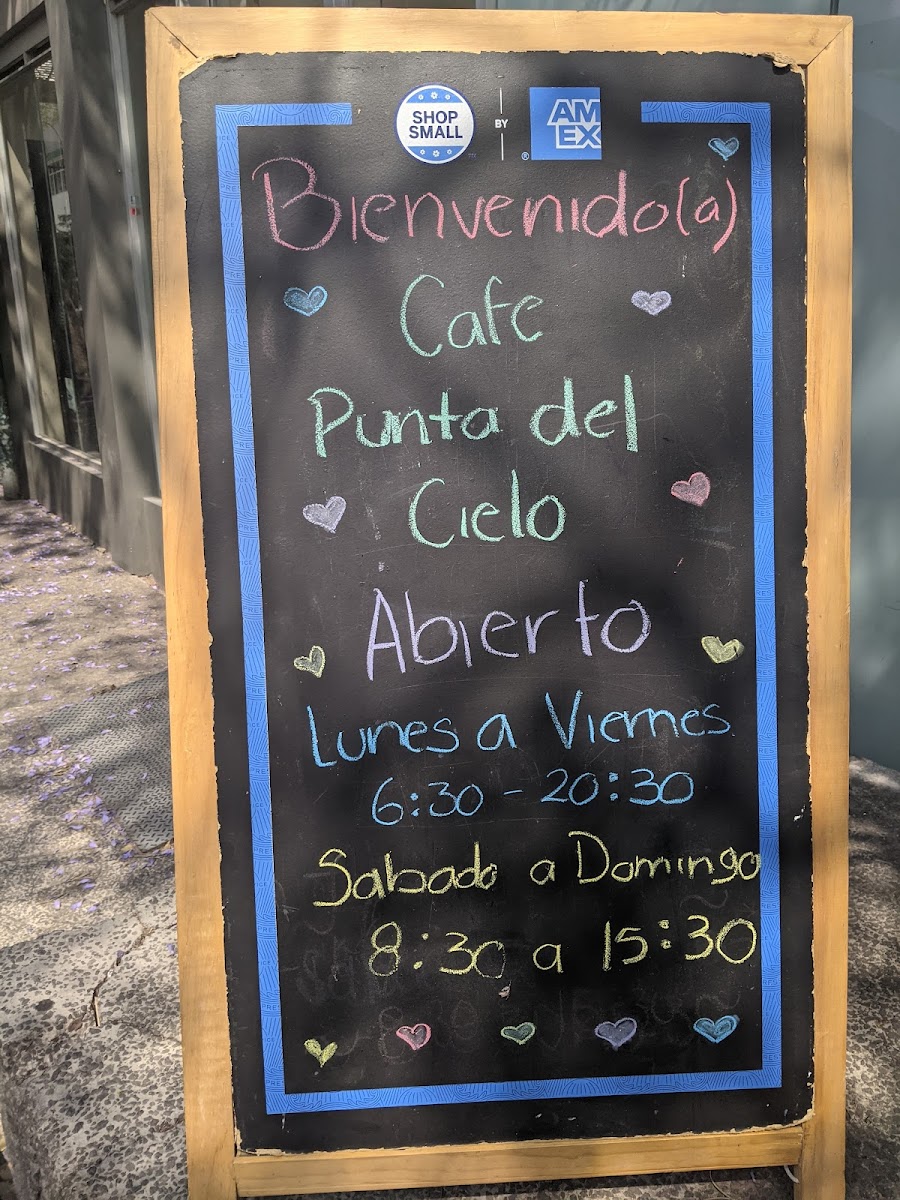 SHOP
SMALL
BY
AM
EX
Bienvenido(a)
Cafe
Punta del
Cielo
Abierto
Lunes a Viernes
6:30 - 20:30
Sabado a Domingo
8:30 a 15:30